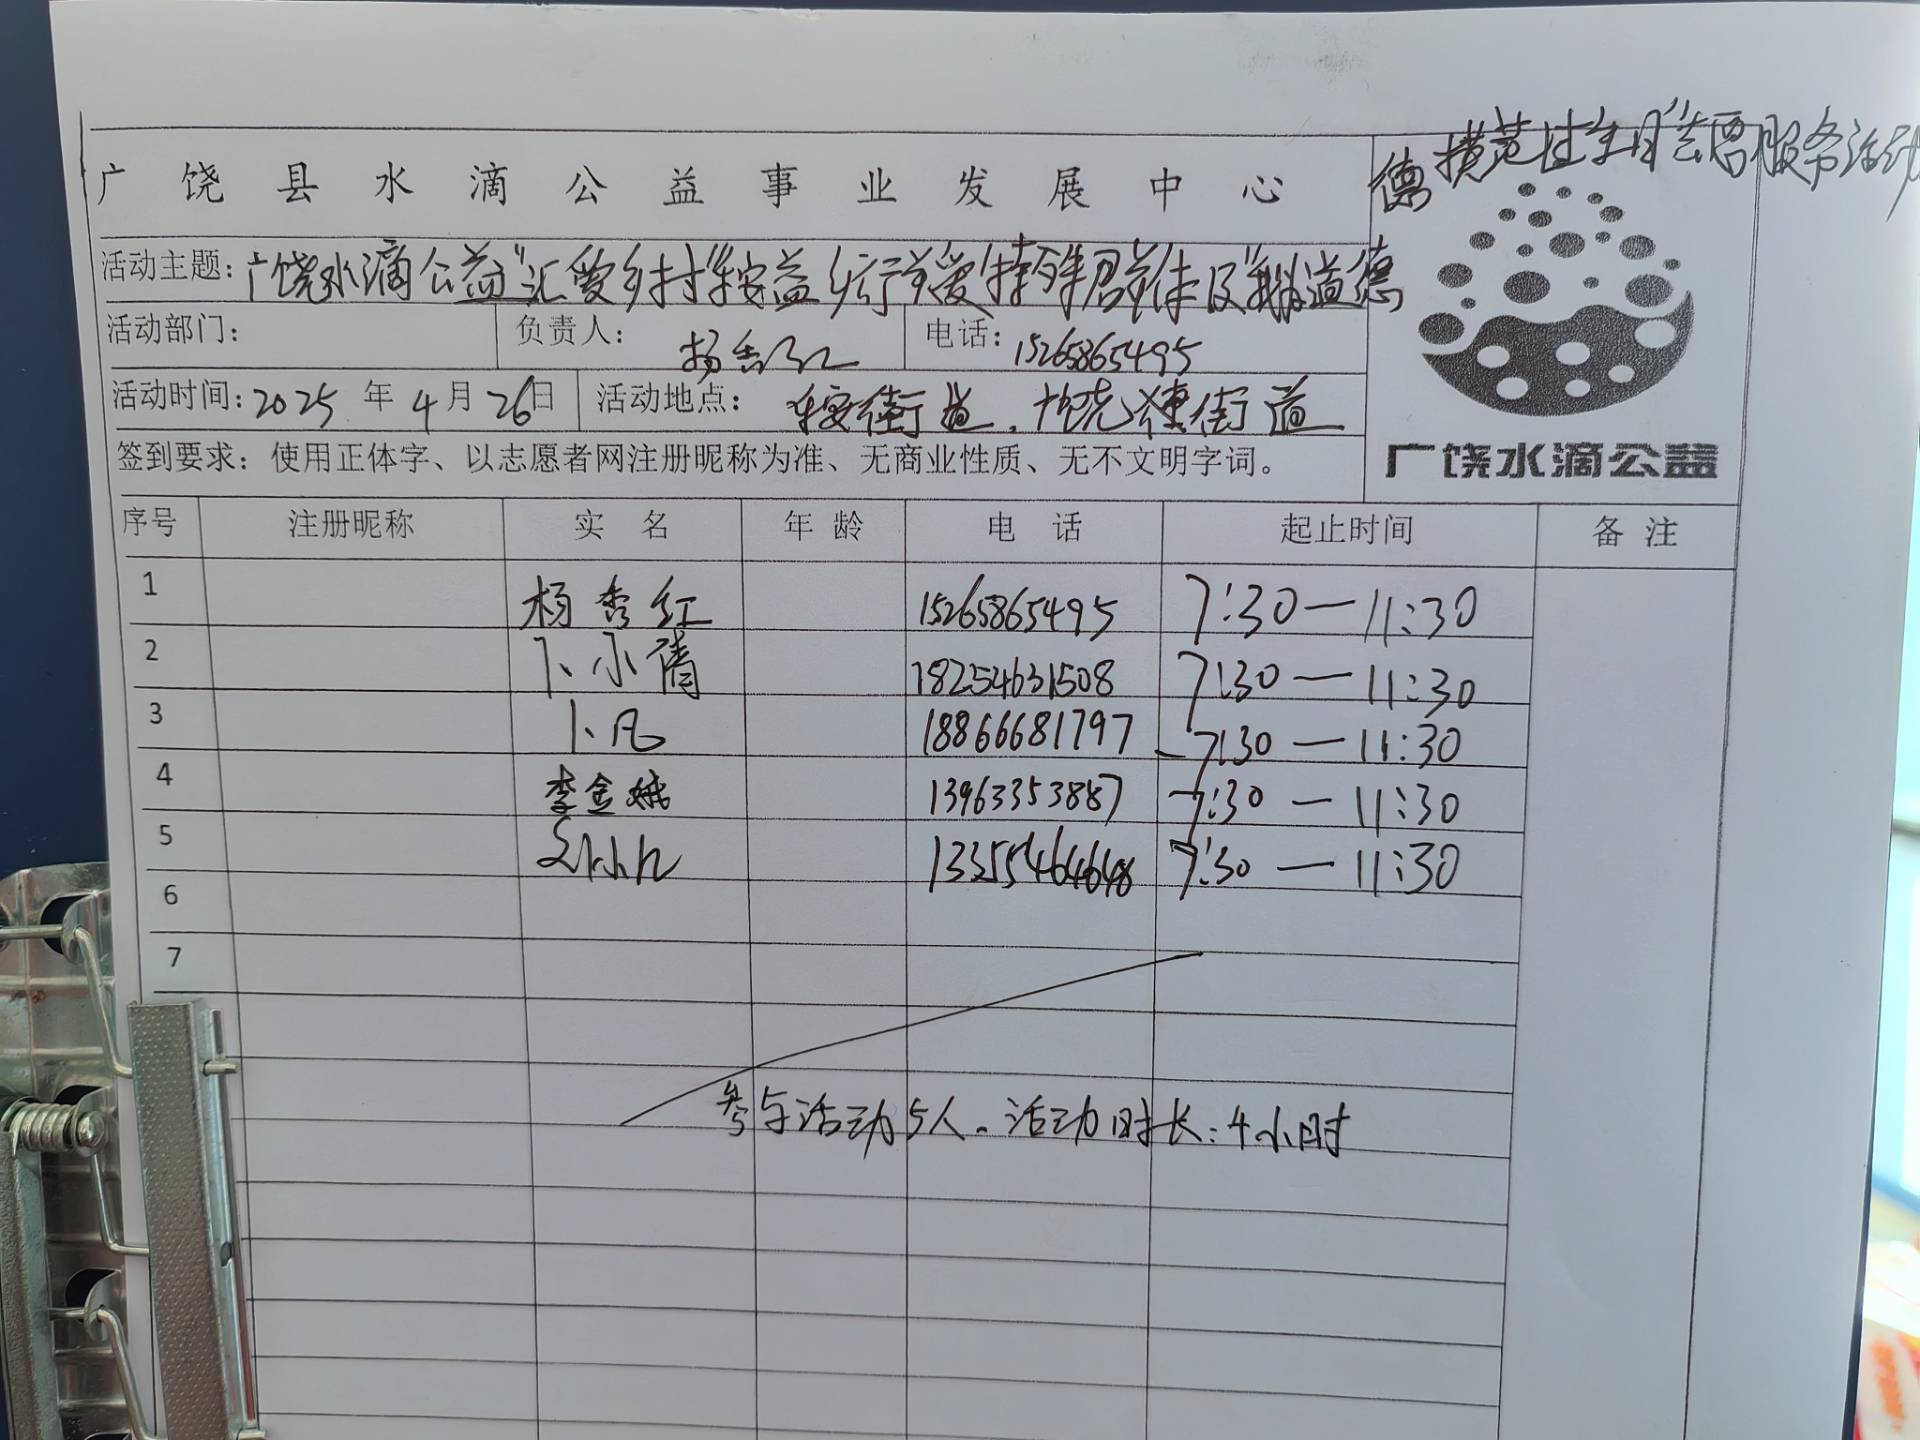 德模范过生日"志愿服务活动
广饶县水滴公益事业发展中心
活动主题：广饶水滴公益"汇爱乡村""益乡行关爱特殊群体及"道德
活动部门： 负责人：杨秀红 电话：15265865495
活动时间：2025年4月26日 活动地点：街道、街道
签到要求：使用正体字、以志愿者网注册昵称为准、无商业性质、无不文明字词。
广饶水滴公益
序号 注册昵称 实名 年龄 电话 起止时间 备注
1 杨秀红 15265865495 7:30—11:30
2 卜小倩 18254631508 7:30—11:30
3 卜凡 18866681797 7:30—11:30
4 李金娥 13963353887 7:30—11:30
5 13355464648 7:30—11:30
6
7
参与活动5人。活动时长：4小时